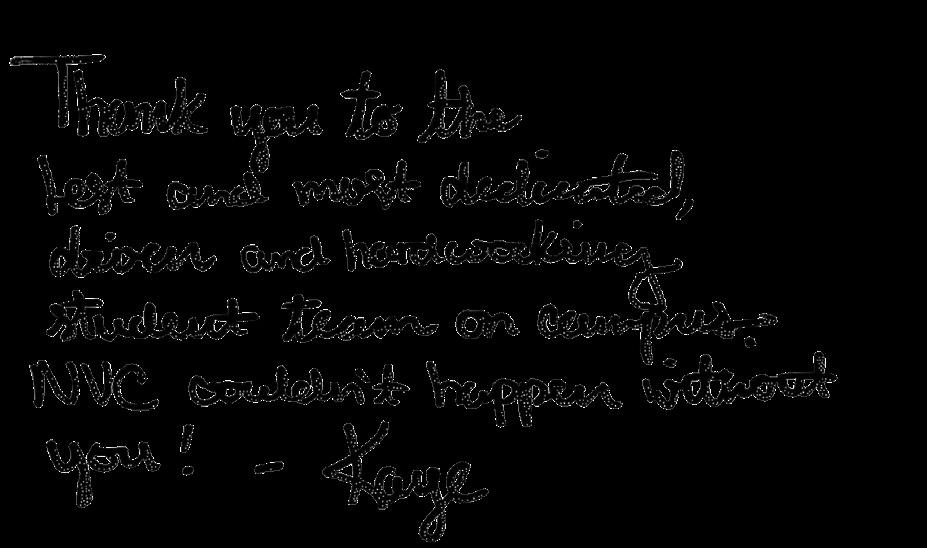 Thank you to the
best and most dedicated,
driven and hardworking
student team on campus.
NVC couldn't happen without
you! - Kaye